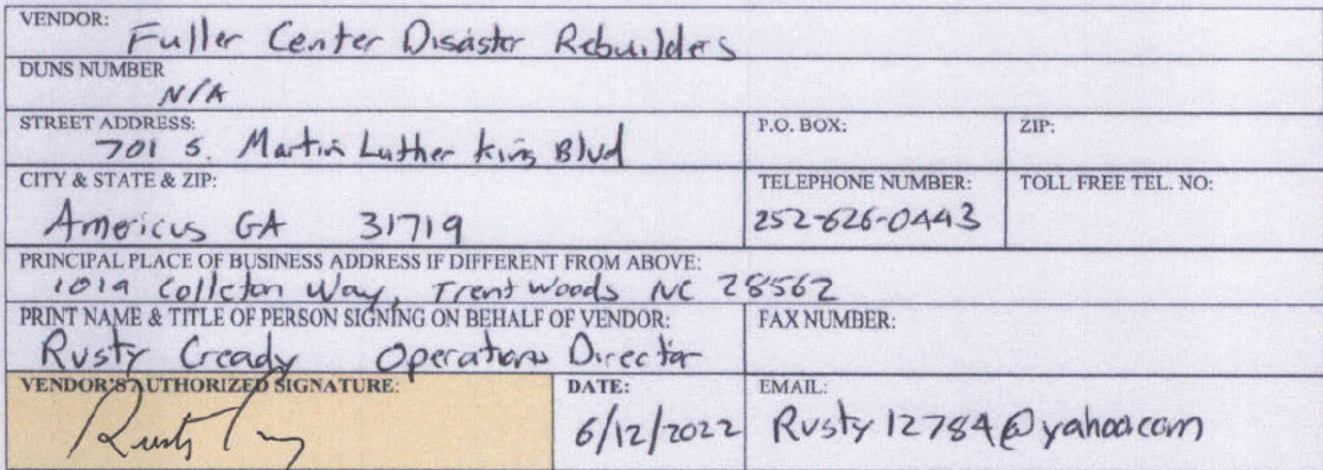 VENDOR:
Fuller Center Disaster Rebuilders
DUNS NUMBER
N/A
STREET ADDRESS:
701 S. Martin Luther King Blvd
P.O. BOX:
ZIP:
CITY & STATE & ZIP:
Americus GA 31719
TELEPHONE NUMBER:
252-626-0443
TOLL FREE TEL. NO:
PRINCIPAL PLACE OF BUSINESS ADDRESS IF DIFFERENT FROM ABOVE:
1019 Colleton Way, Trent Woods NC 28562
PRINT NAME & TITLE OF PERSON SIGNING ON BEHALF OF VENDOR:
Rusty Cready Operations Director
FAX NUMBER:
VENDOR'S AUTHORIZED SIGNATURE:
DATE:
6/12/2022
EMAIL:
Rusty12784@yahoo.com